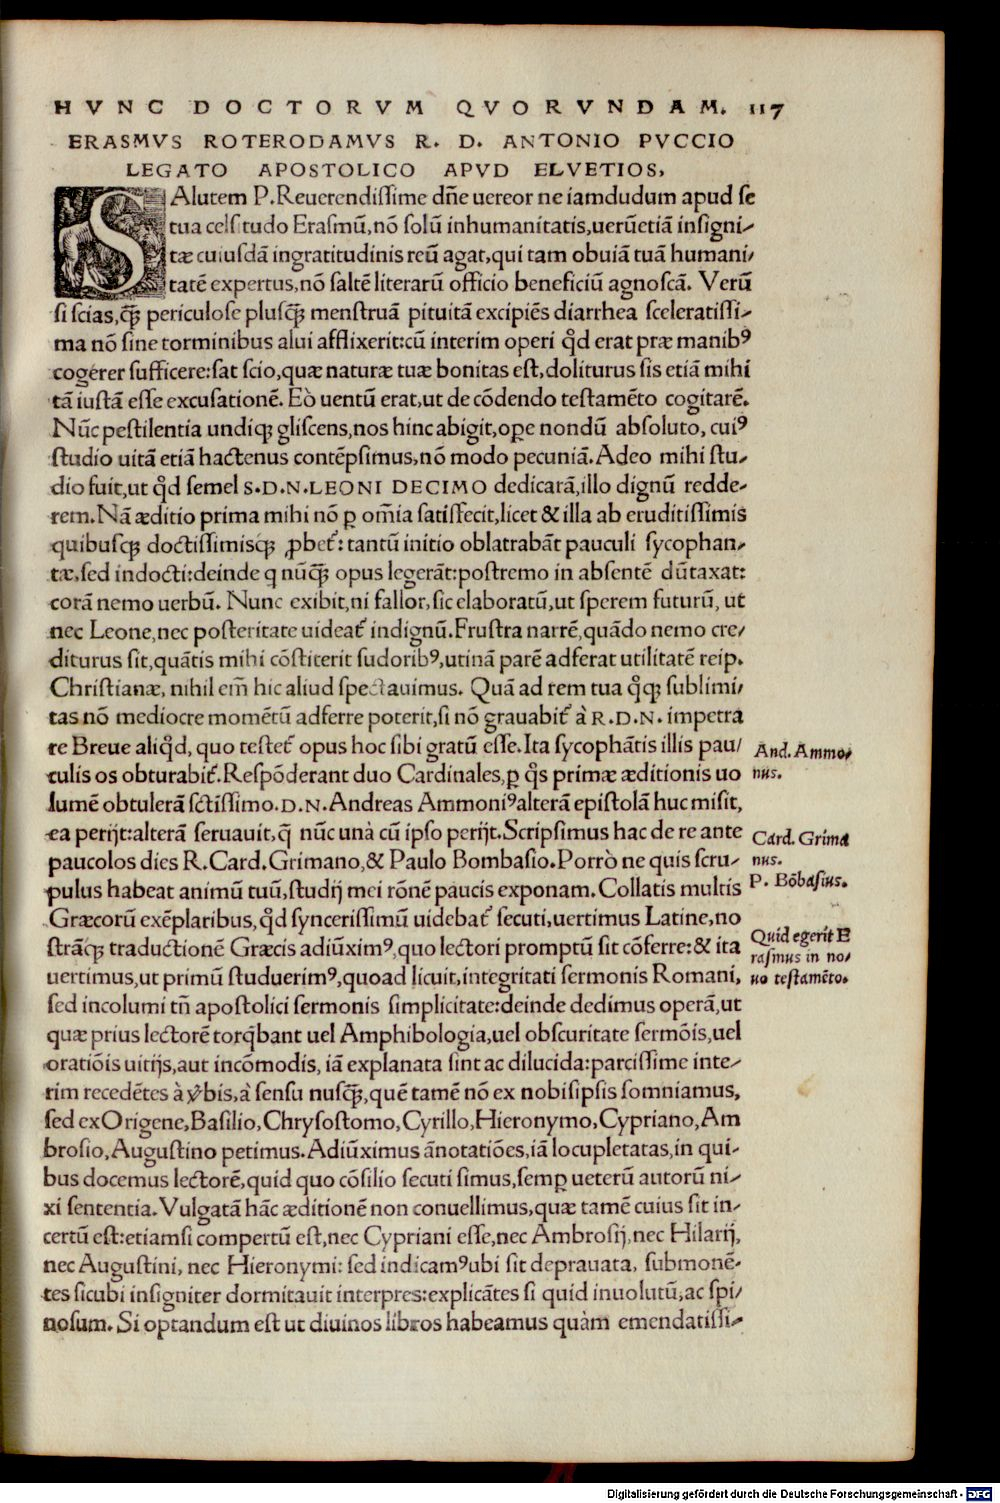 HVNC DOCTORVM QVORVNDAM. 117
ERASMVS ROTERODAMVS R. D. ANTONIO PVCCIO
LEGATO APOSTOLICO APVD ELVETIOS,
SAlutem P. Reuerendissime dñe uereor ne iamdudum apud se
tua celsitudo Erasmũ, nõ solũ inhumanitatis, uerũetiã insigni-
tæ cuiusdã ingratitudinis reũ agat, qui tam obuiã tuã humani-
tatẽ expertus, nõ saltẽ literarũ officio beneficiũ agnoscã. Verũ
si scias, q̃ꝫ periculose plusq̃ꝫ menstruã pituitã excipiẽs diarrhea sceleratissi-
ma nõ sine torminibus alui afflixerit: cũ interim operi qd̓ erat præ manibꝰ
cogerer sufficere: sat scio, quæ naturæ tuæ bonitas est, doliturus sis etiã mihi
tã iustã esse excusationẽ. Eò uentũ erat, ut de cõdendo testamẽto cogitarẽ.
Nũc pestilentia undiqꝫ gliscens, nos hinc abigit, oꝑe nondũ absoluto, cuiꝰ
studio uitã etiã hactenus contẽpsimus, nõ modo pecuniã. Adeo mihi stu-
dio fuit, ut qd̓ semel S.D.N. LEONI DECIMO dedicarã, illo dignũ redde-
rem. Nã æditio prima mihi nõ ꝑ om̃ia satisfecit, licet & illa ab eruditissimis
quibusqꝫ doctissimisqꝫ ꝓbet᷑: tantũ initio oblatrabãt pauculi sycophan-
tæ, sed indocti: deinde q nũq̃ꝫ opus legerãt: postremo in absentẽ dũtaxat:
corã nemo uerbũ. Nunc exibit, ni fallor, sic elaboratũ, ut sperem futurũ, ut
nec Leone, nec posteritate uideat᷑ indignũ. Frustra narrẽ, quãdo nemo cre-
diturus sit, quãtis mihi cõstiterit sudoribꝰ, utinã parẽ adferat utilitatẽ reip.
Christianæ, nihil em̃ hic aliud spectauimus. Quã ad rem tua q̊qꝫ sublimi-
tas nõ mediocre momẽtũ adferre poterit, si nõ grauabit᷑ à R.D.N. impetra
re Breue aliqd̓, quo testet᷑ opus hoc sibi gratũ esse. Ita sycophãtis illis pau-
culis os obturabit᷑. Respõderant duo Cardinales, ꝑ q̊s primæ æditionis uo
lumẽ obtulerã sctĩssimo. D.N. Andreas Ammoniꝰ alterã epistolã huc misit,
ea perijt: alterã seruauit, q̃ nũc unà cũ ipso perijt. Scripsimus hac de re ante
paucolos dies R. Card. Grimano, & Paulo Bombasio. Porrò ne quis scru-
pulus habeat animũ tuũ, studij mei rõnẽ paucis exponam. Collatis multis
Græcorũ exẽplaribus, qd̓ syncerissimũ uidebat᷑ secuti, uertimus Latine, no
strãqꝫ traductionẽ Græcis adiũximꝰ, quo lectori promptũ sit cõferre: & ita
uertimus, ut primũ studuerimꝰ, quoad licuit, integritati sermonis Romani,
sed incolumi tñ apostolici sermonis simplicitate: deinde dedimus operã, ut
quæ prius lectorẽ torqbant uel Amphibologia, uel obscuritate sermõis, uel
oratiõis uitijs, aut incõmodis, iã explanata sint ac dilucida: parcissime inte-
rim recedẽtes à v̓bis, à sensu nusq̃ꝫ, quẽ tamẽ nõ ex nobisipsis somniamus,
sed ex Origene, Basilio, Chrysostomo, Cyrillo, Hieronymo, Cypriano, Am
brosio, Augustino petimus. Adiũximus ãnotatiões, iã locupletatas, in qui-
bus docemus lectorẽ, quid quo cõsilio secuti simus, semꝑ ueterũ autorũ ni-
xi sententia. Vulgatã hãc æditionẽ non conuellimus, quæ tamẽ cuius sit in-
certũ est: etiamsi compertũ est, nec Cypriani esse, nec Ambrosij, nec Hilarij,
nec Augustini, nec Hieronymi: sed indicamꝰ ubi sit deprauata, submonẽ-
tes sicubi insigniter dormitauit interpres: explicãtes si quid inuolutũ, ac spi-
nosum. Si optandum est ut diuinos libros habeamus quàm emendatissi-
And. Ammo-
nus.
Card. Grima
nus.
P. Bõbasius.
Quid egerit E
rasmus in no-
uo testamẽto.
Digitalisierung gefördert durch die Deutsche Forschungsgemeinschaft - DFG